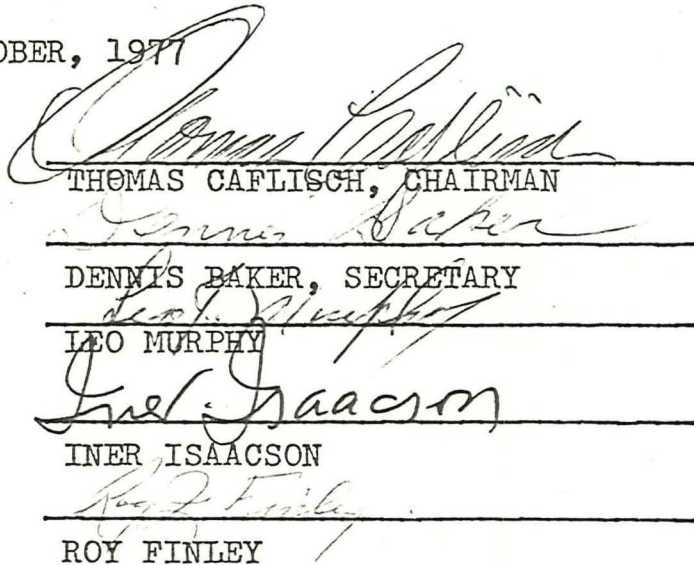 OBER, 1977
Thomas Caflisch
THOMAS CAFLISCH, CHAIRMAN
Dennis Baker
DENNIS BAKER, SECRETARY
Leo T. Murphy
LEO MURPHY
Iner Isaacson
INER ISAACSON
Roy F Finley
ROY FINLEY